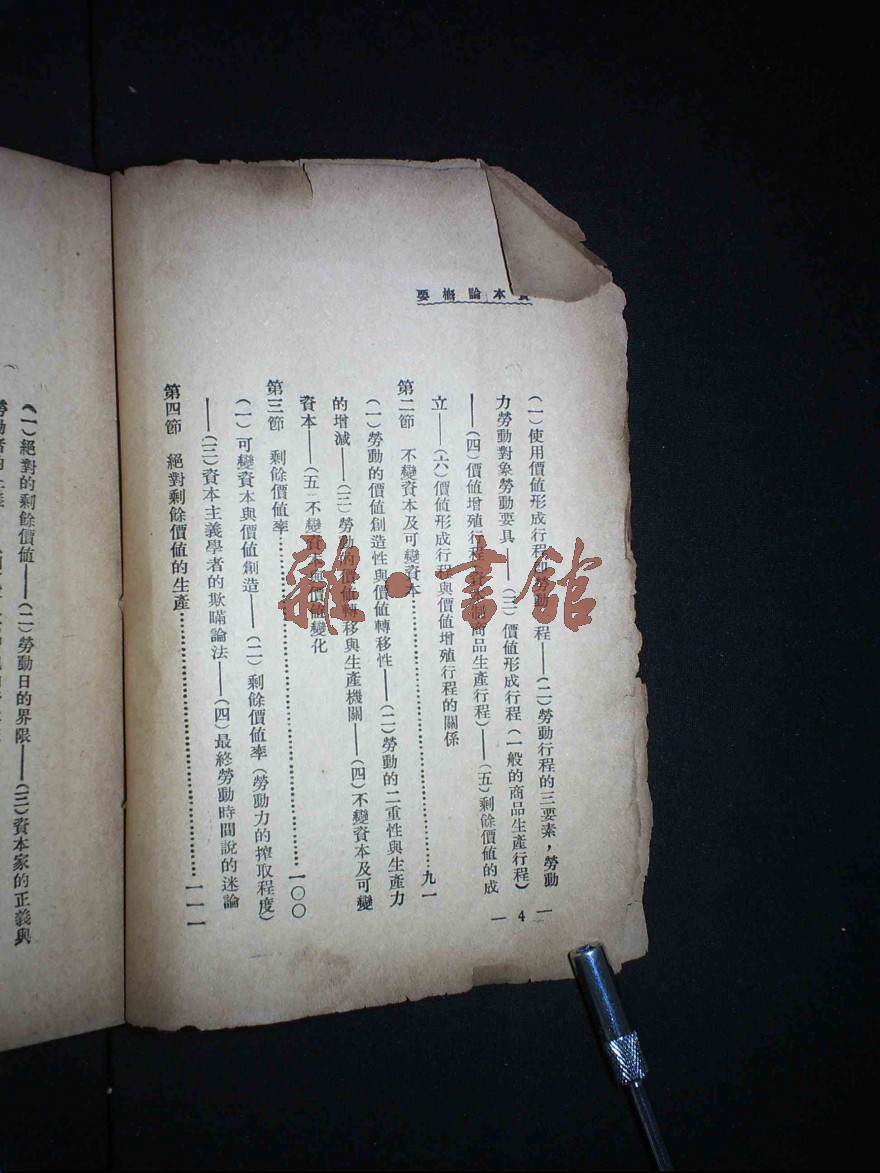 本論概要
(一)使用價値形成行程卽勞動程——(二)勞動行程的三要素，勞動
力勞動對象勞動要具——(三)價値形成行程(一般的商品生產行程)
——(四)價値增殖行程(資本制商品生產行程)——(五)剩餘價値的成
立——(六)價値形成行程與價値增殖行程的關係
第二節 不變資本及可變資本…………九一
(一)勞動的價値創造性與價値轉移性——(二)勞動的二重性與生產力
的增減——(三)勞動的價値轉移與生產機關——(四)不變資本及可變
資本——(五)不變資本與價値變化
第三節 剩餘價値率…………一〇〇
(一)可變資本與價値創造——(二)剩餘價値率(勞動力的搾取程度)
——(三)資本主義學者的欺瞞論法——(四)最終勞動時間說的迷論
第四節 絕對剩餘價値的生產…………一一一
— 4 —
(一)絕對的剩餘價値——(二)勞動日的界限——(三)資本家的正義與
勞動者的
雜·書館